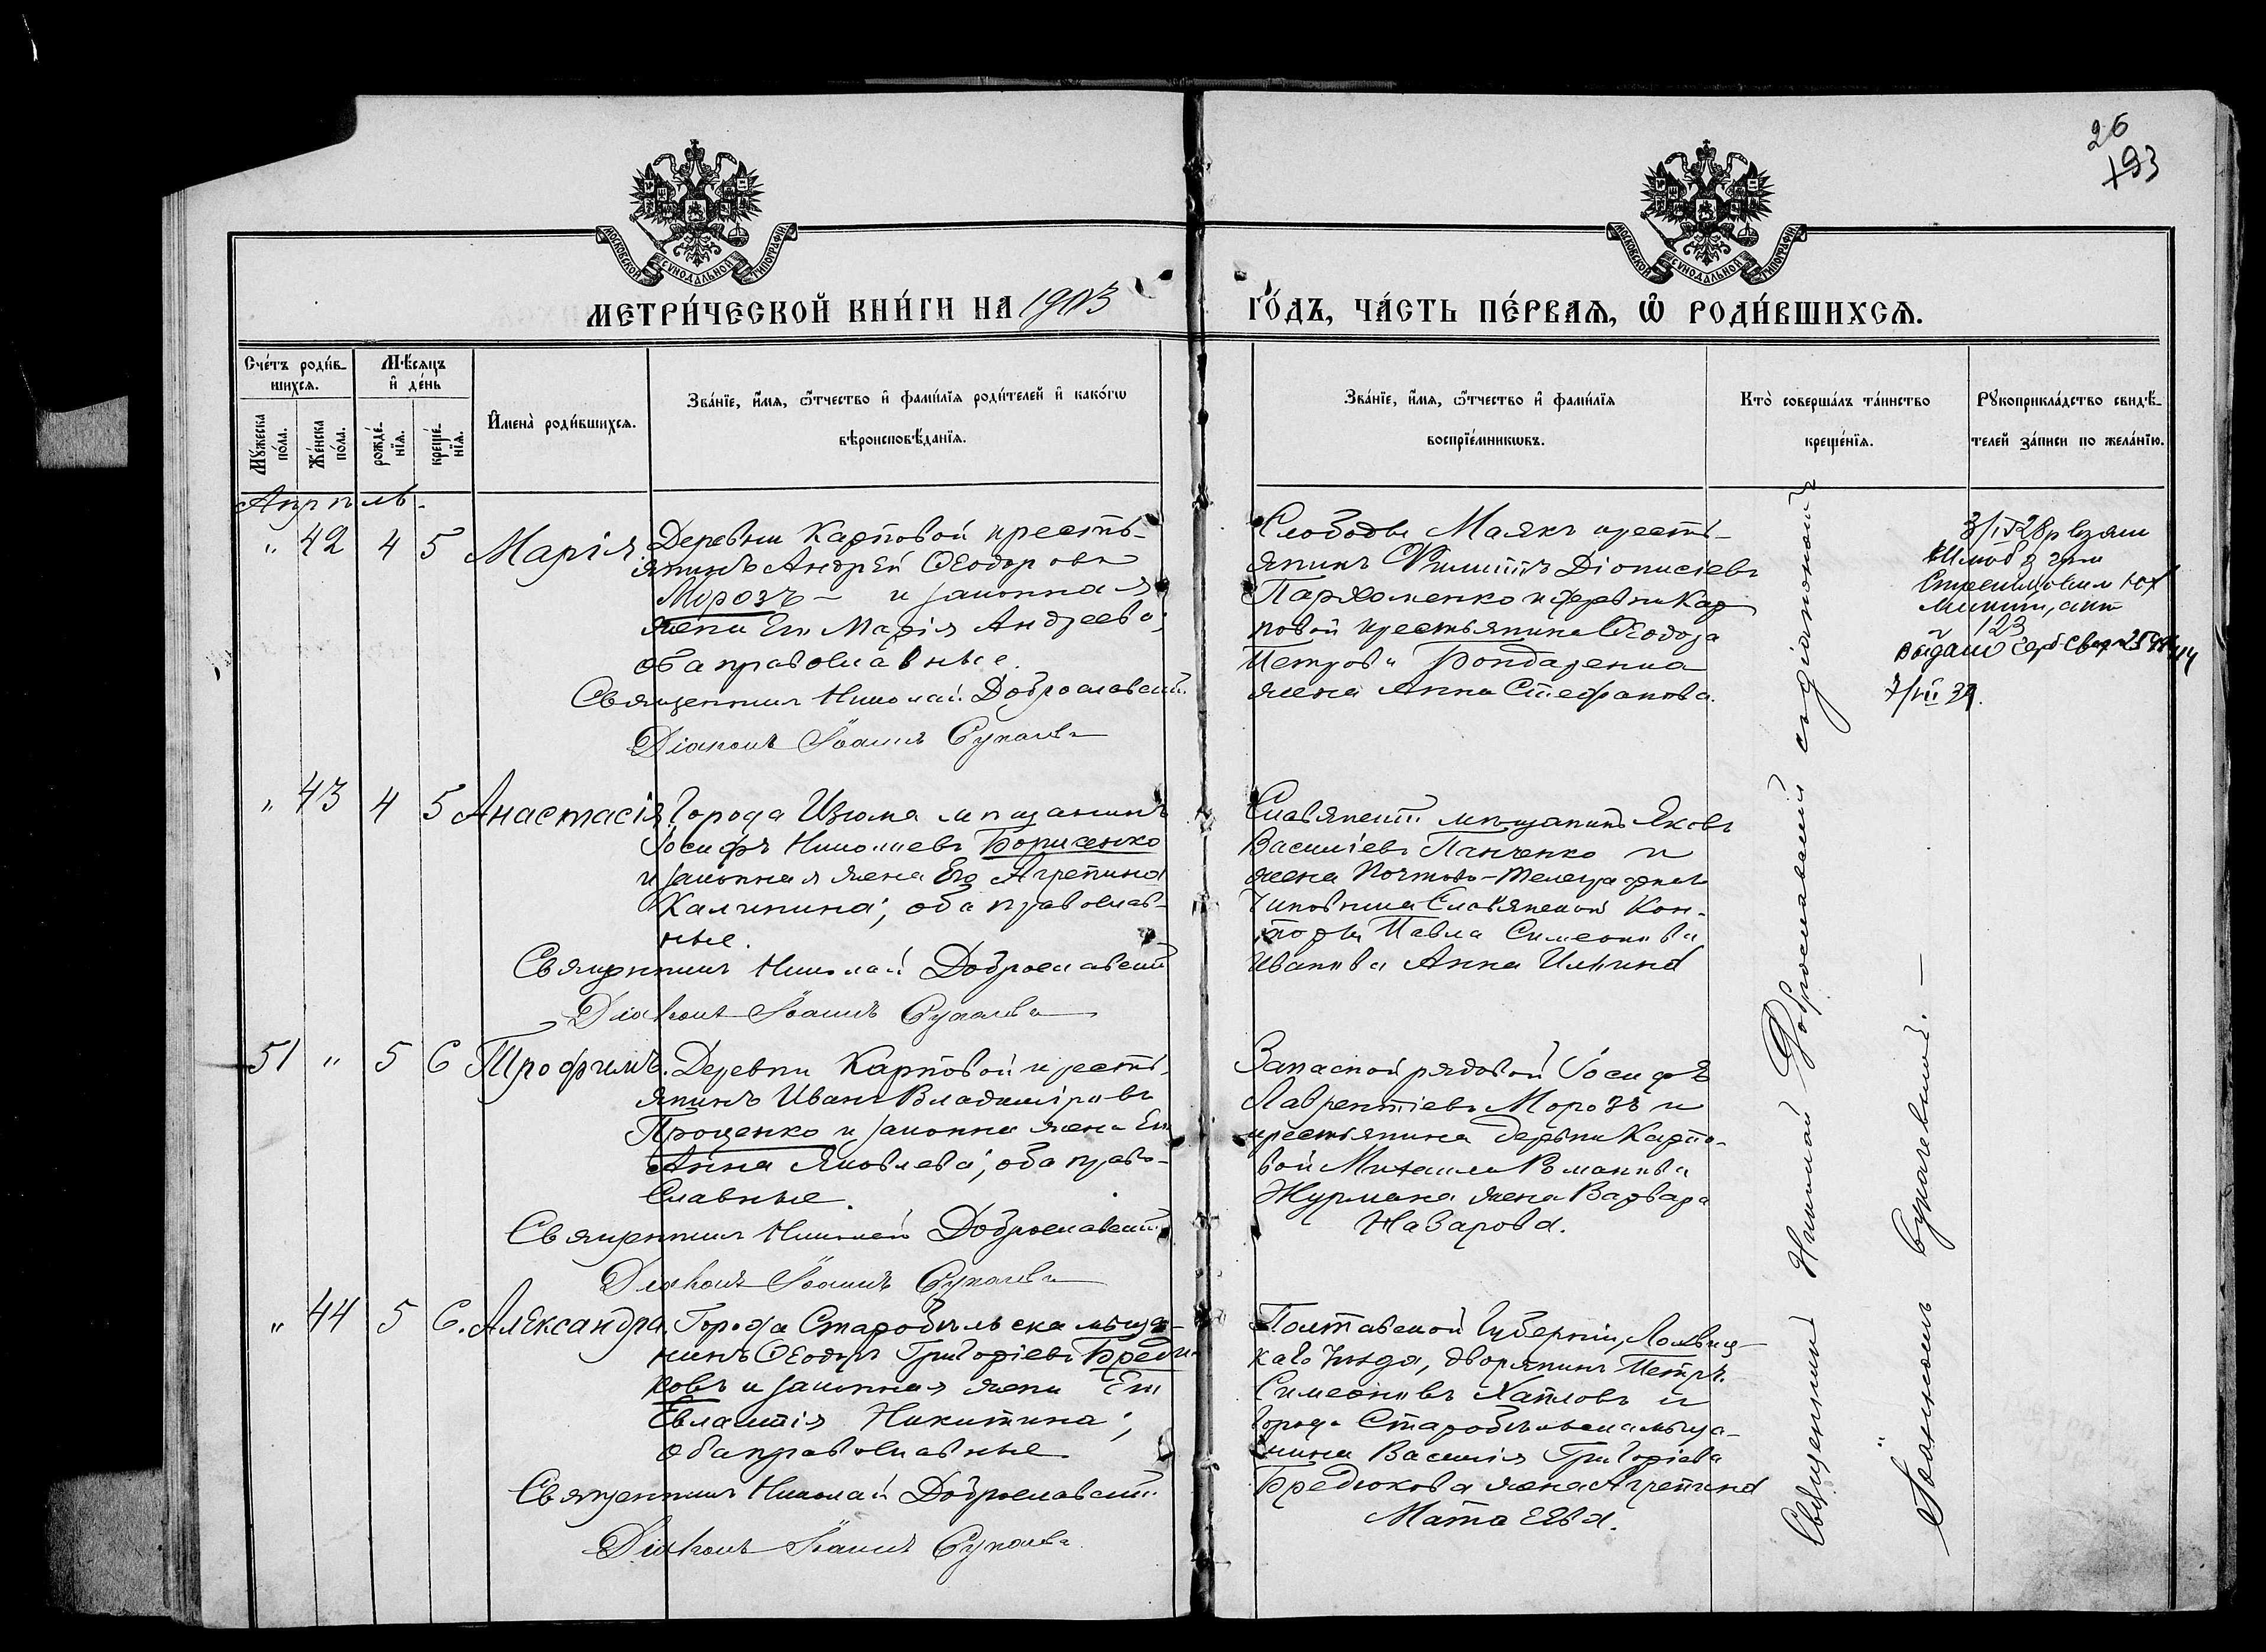 26
193
МОСКОВСКОЙ СѴНОДАЛЬНОЙ ТИПОГРАФІИ
МОСКОВСКОЙ СѴНОДАЛЬНОЙ ТИПОГРАФІИ
МЕТРИ́ЧЕСКОЙ КНИ́ГИ НА 1903
ГО́ДЪ, ЧА́СТЬ ПЕ́РВАѦ, Ѽ РОДИ́ВШИХСѦ.
Сче́тъ роди́в-
шихсѧ.
Мꙋжеска по́ла.
Же́нска по́ла.
Мѣ́сяцъ
и҆ де́нь
рожде́-
нїѧ.
креще́-
нїѧ.
И҆мена̀ роди́вшихсѧ.
Зва́нїе, и҆́мѧ, ѻ҆́тчество и҆ фамилїѧ роди́телей и҆ како́гѡ
вѣроисповѣ́данїѧ.
Зва́нїе, и҆́мѧ, ѻ҆́тчество и҆ фами́лїѧ
воспрїе́мникѡвъ.
Кто̀ соверша́лъ та́инство
креще́нїѧ.
Рꙋкоприкла́дство свидѣ́-
телей за́писи по жела́нїю.
Апрѣль.
" 42 4 5 Марія
Деревни Карповой кресть-
янинъ Андрей Ѳеодоровъ
Морозъ – и законная
жена Его Марія Андреева;
оба православные.
Священникъ Николай Доброславскій
Діаконъ Іоаннъ
Слободы Маякъ кресть-
янинъ Филиппъ Діонисіевъ
Пархоменко и деревни Кар
повой крестьянина Ѳеодора
Петрова Бондаренка
жена Анна Стефанова.
123
" 43 4 5 Анастасія
Города Изюма мѣщанинъ
Іосифъ Николаевъ Борисенко
и законная жена Его Агрепина
Калинина; оба православ-
ные.
Священникъ Николай Доброславскій
Діаконъ Іоаннъ
Славянскій мѣщанинъ Яковъ
Василіевъ Панченко и
жена Почтово-телеграфнаго
Чиновника Славянской Кон-
торы Павла Симеонова
Иванова Анна Ильина
51 " 5 6 Трофимъ.
Деревни Карповой кресть-
янинъ Иванъ Владиміровъ
Проценко и законна жена Его
Анна Яковлева; оба право-
славные.
Священникъ Николай Доброславскій
Діаконъ Іоаннъ
Запасной рядовой Іосифъ
Лаврентіевъ Морозъ и
крестьянина деревни Карпо-
вой Михаила Романова
Журмана жена Варвара
Назарова.
" 44 5 6. Александра.
Города Старобѣльска мѣща-
нинъ Ѳеодоръ Григоріевъ Бредю-
ковъ и законная жена Его
Евлампія Никитина;
оба православные.
Священникъ Николай Доброславскій
Діаконъ Іоаннъ
Полтавской губерніи, Лохвиц-
каго Уѣзда, дворянинъ Петръ
Симеоновъ Хатловъ и
города Старобѣльска мѣща-
нина Василія Григоріева
Бредюкова жена Агрепина
Матѳеева.
Священникъ Николай Доброславскій съ діакономъ
Іоанномъ